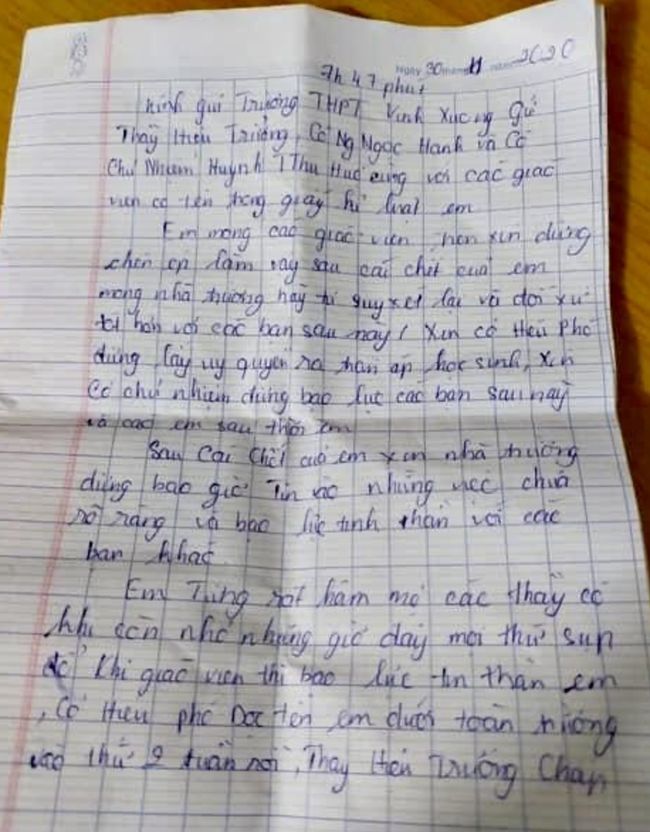 Ngày 30 tháng 11 năm 2020
7h 47 phút
kính gửi Trường THPT Vĩnh Xương Gửi
Thầy Hiệu Trưởng, Cô Ng Ngọc Hạnh và Cô
Chủ Nhiệm Huỳnh T Thu Huệ cùng với các giáo
viên có tên trong giấy kỉ luật em
Em mong các giáo viên xin đừng
chèn ép làm vậy sau cái chết của em
mong nhà trường hãy suy xét lại và đối xử
tốt hơn với các bạn sau này! Xin cô Hiệu Phó
đừng lấy uy quyền ra đàn áp học sinh, xin
Cô chủ nhiệm đừng bạo lực các bạn sau này
và các em sau thời em
Sau Cái Chết của em xin nhà trường
đừng bao giờ Tin vào những việc chưa
rõ ràng và bạo lực tinh thần với các
bạn khác
Em Từng rất hâm mộ các thầy cô
khi còn nhỏ nhưng giờ đây mọi thứ sụp
đổ Khi giáo viên thì bạo lực tin thần em
, Cô Hiệu phó Đọc tên em dưới toàn trường
vào thứ 2 tuần rồi, Thầy Hiệu Trưởng